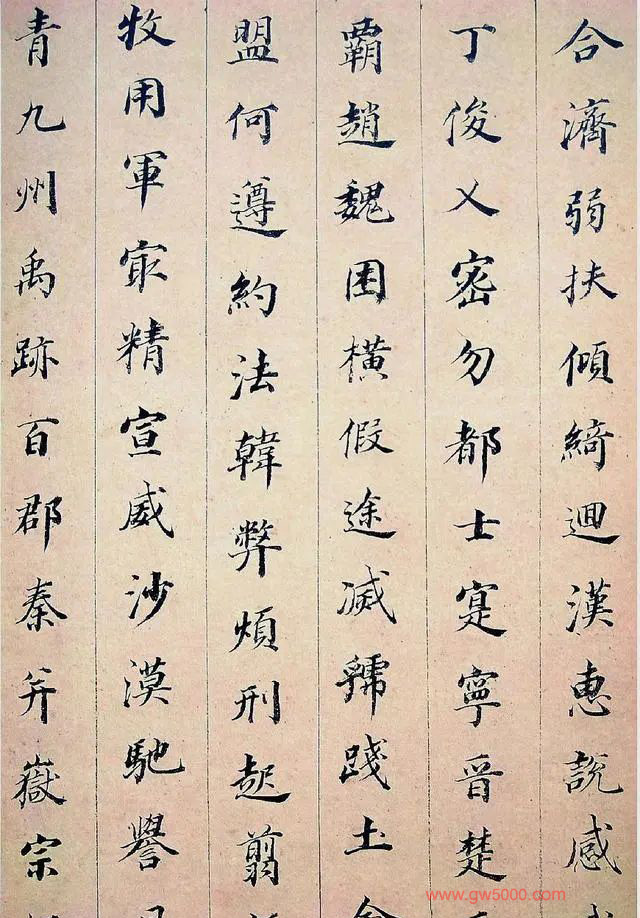 合濟弱扶傾綺迴漢惠說感
丁俊乂密勿都士寔寧晉楚
霸趙魏困橫假途滅虢踐土
盟何遵約法韓弊煩刑起翦
牧用軍最精宣威沙漠馳譽
青九州禹跡百郡秦并嶽宗
www.gw5000.com